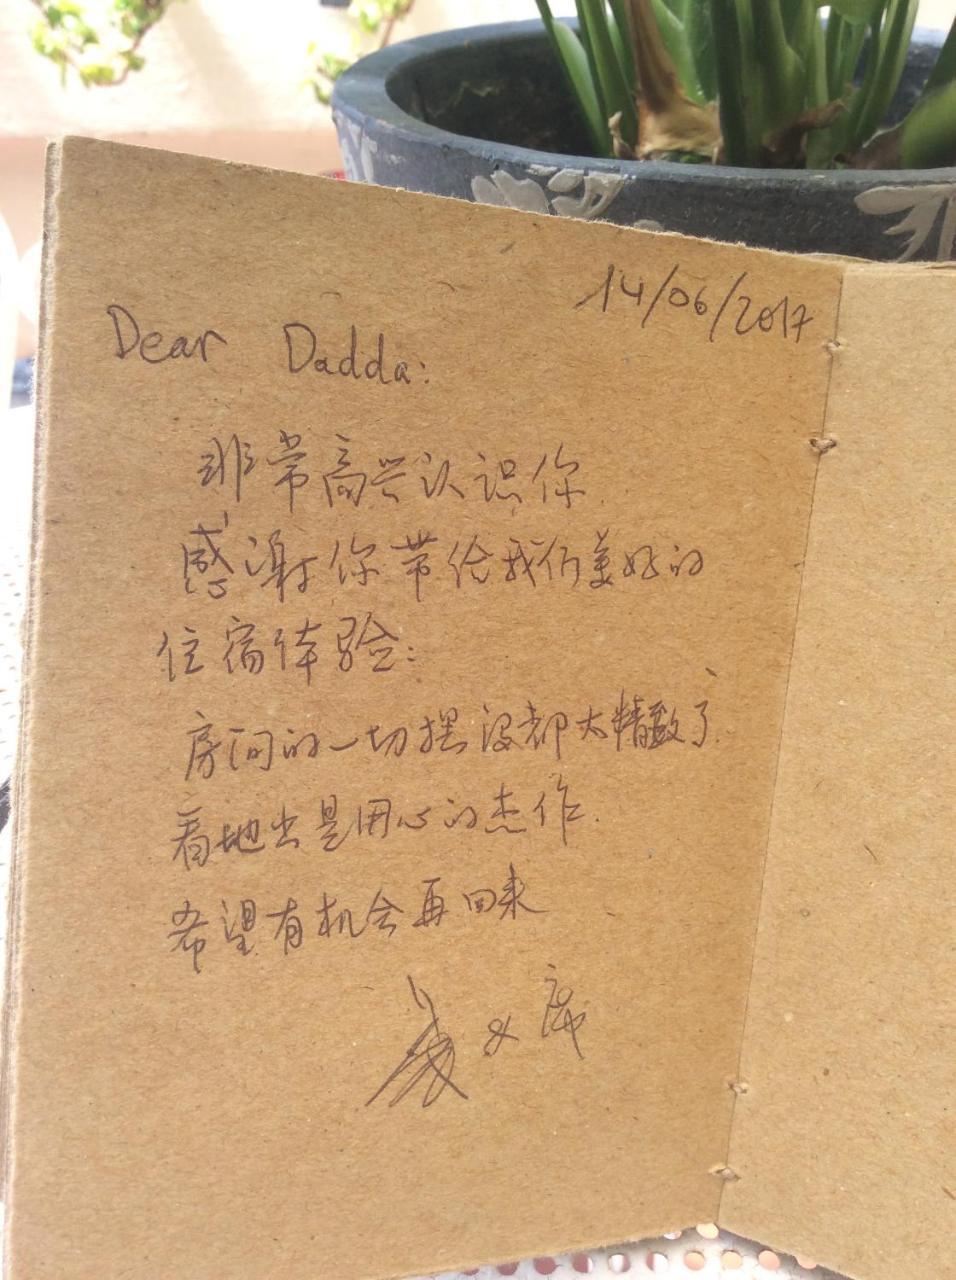 14/06/2017
Dear Dadda:
非常高兴认识你.
感谢你带给我们美好的
住宿体验:
房间的一切摆设都太精致了.
看地出是用心的杰作.
希望有机会再回来
&